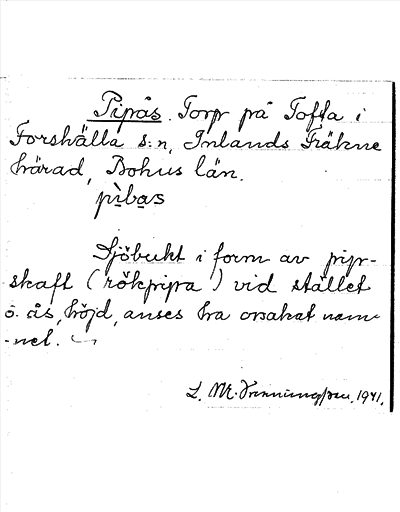 Pipås. Torp på Toffta i
Forshälla s:n, Inlands Fräkne
härad, Bohus län.
pìbas
Sjöbukt i form av pip-
skaft (rökpipa) vid stället
o. ås, höjd, anses ha orsakat nam-
net.
L. M. 1941.